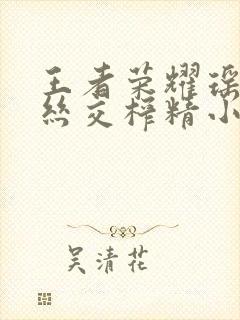 王者荣耀瑶
丝交榨精小
吴清花